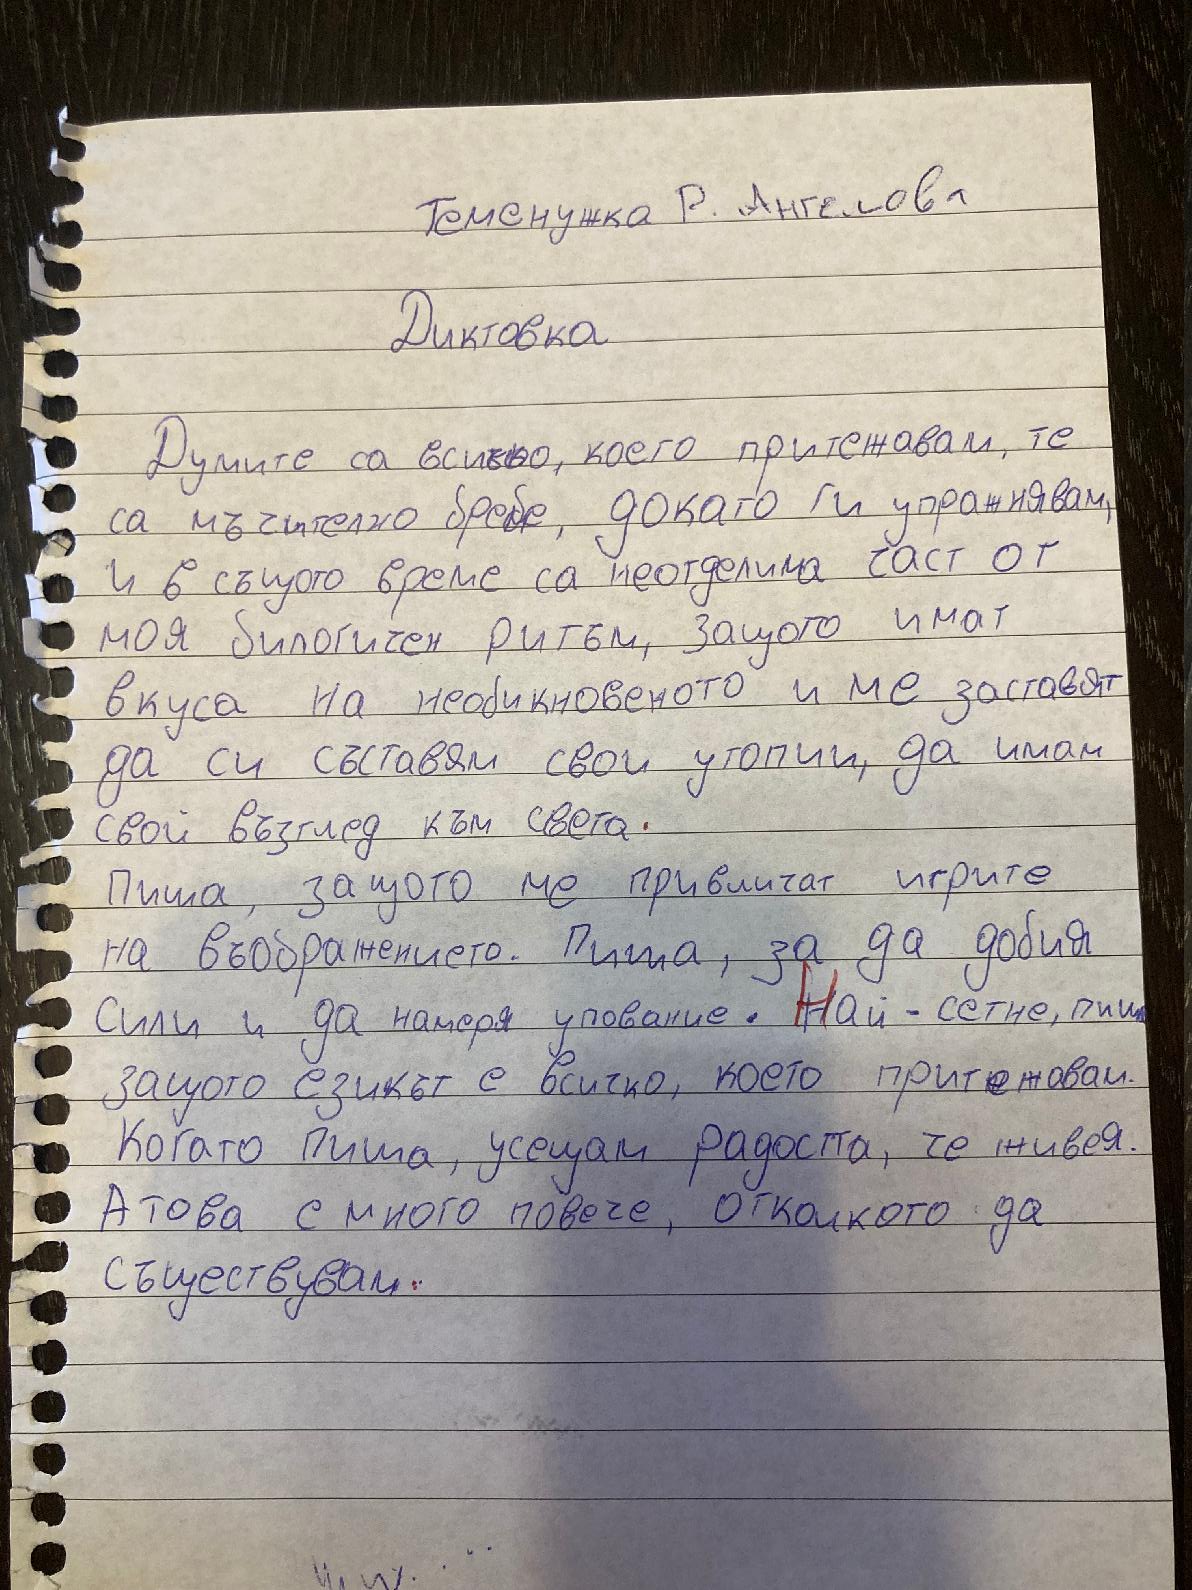 Теменужка Р. Ангелова
Диктовка
Думите са всичко, което притежавам, те
са мъчително бреме, докато ги упражнявам,
и в същото време са неотделима част от
моя билогичен ритъм, защото имат
вкуса на необикновеното и ме заставят
да си съставям свои утопии, да имам
свой възглед към света.
Пиша, защото ме привличат игрите
на въображението. Пиша, за да добия
сили и да намеря упование. Най-сетне, пиша
защото езикът е всичко, което притежавам.
Когато пиша, усещам радостта, че живея.
А това е много повече, отколкото да
съществувам.